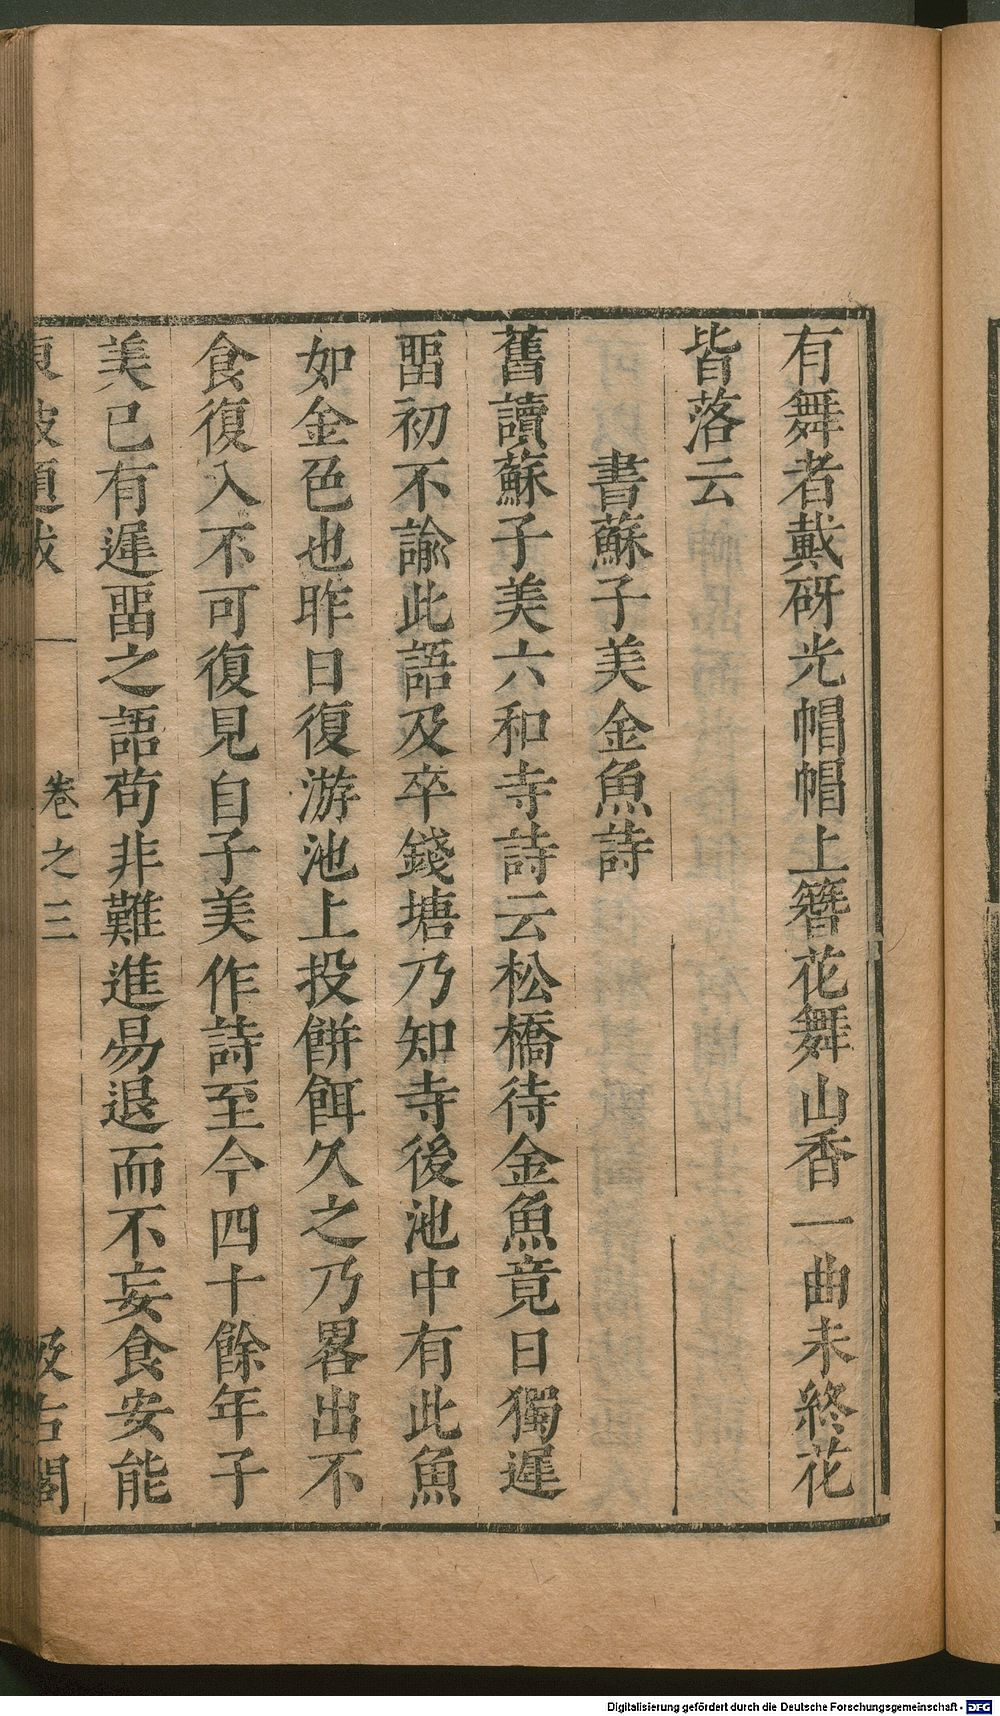 有舞者戴砑光帽帽上簪花舞山香一曲未終花
皆落云
書蘇子美金魚詩
舊讀蘇子美六和寺詩云松橋待金魚竟日獨遲
畱初不諭此語及卒錢塘乃知寺後池中有此魚
如金色也昨日復游池上投餅餌久之乃畧出不
食復入不可復見自子美作詩至今四十餘年子
美已有遲畱之語茍非難進易退而不妄食安能
東坡題跋 一 卷之三 汲古閣
Digitalisierung gefördert durch die Deutsche Forschungsgemeinschaft - DFG